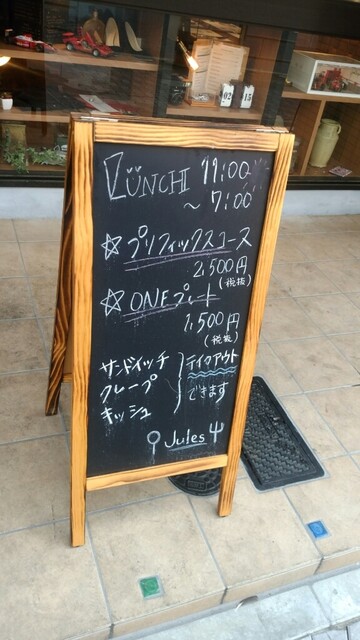 LUNCH 11:00
～7:00
☆プリフィックスコース
2,500円
(税抜)
☆ONEプレート
1,500円
(税抜)
サンドイッチ
クレープ
キッシュ
テイクアウト
できます
Jules
02
15